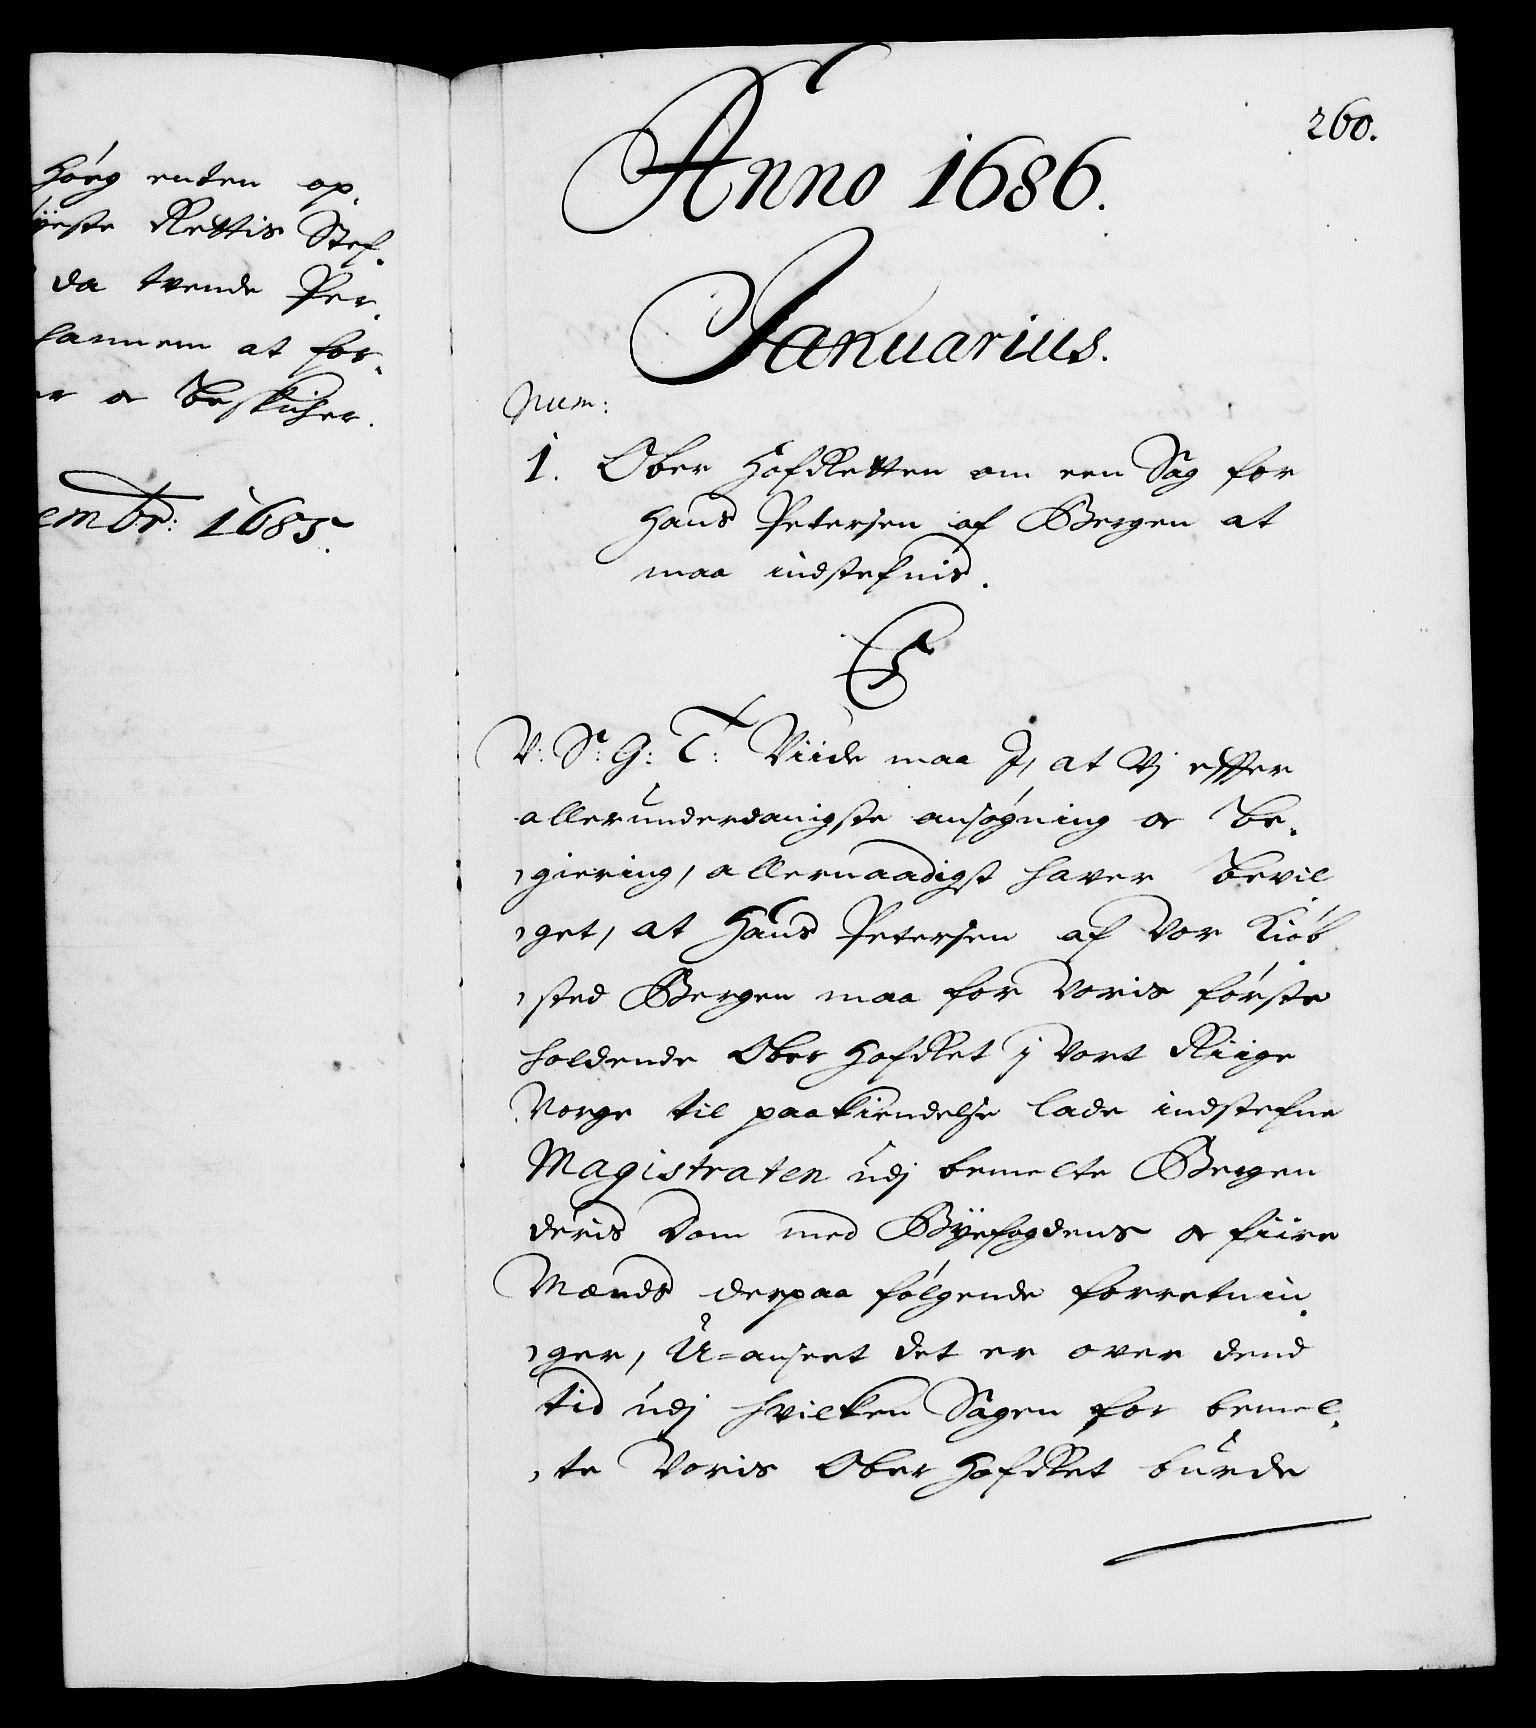 Hôeg enten op-
ÿeste Rettis Stef-
da tvende Per-
hannem at for-
er oc Beskicher.
embr: 1685.
260.
Anno 1686.
Januarius.
Num:
1. Ober HofRetten om een Sag for
Hans Petersen af Bergen at
maa indstefnis.
C5
V: S: G: T: Viide maa I, at Vj effter
allerunderdanigste ansøgning oc be-
giering, allernaadigst hafver bevil-
get, at Hans Petersen af vor Kiøb-
sted Bergen maa for voris første
holdende Ober HofRet j vort Riige
Norge til paakiendelse lade indstefne
Magistraten udj bemelte Bergen
deris Dom med Byefogdens oc fiire
Mænds derpaa følgende forretnin-
ger, U=anseet det er over dend
tid udj hvilken Sagen for bemel-
te voris Ober HofRet burde